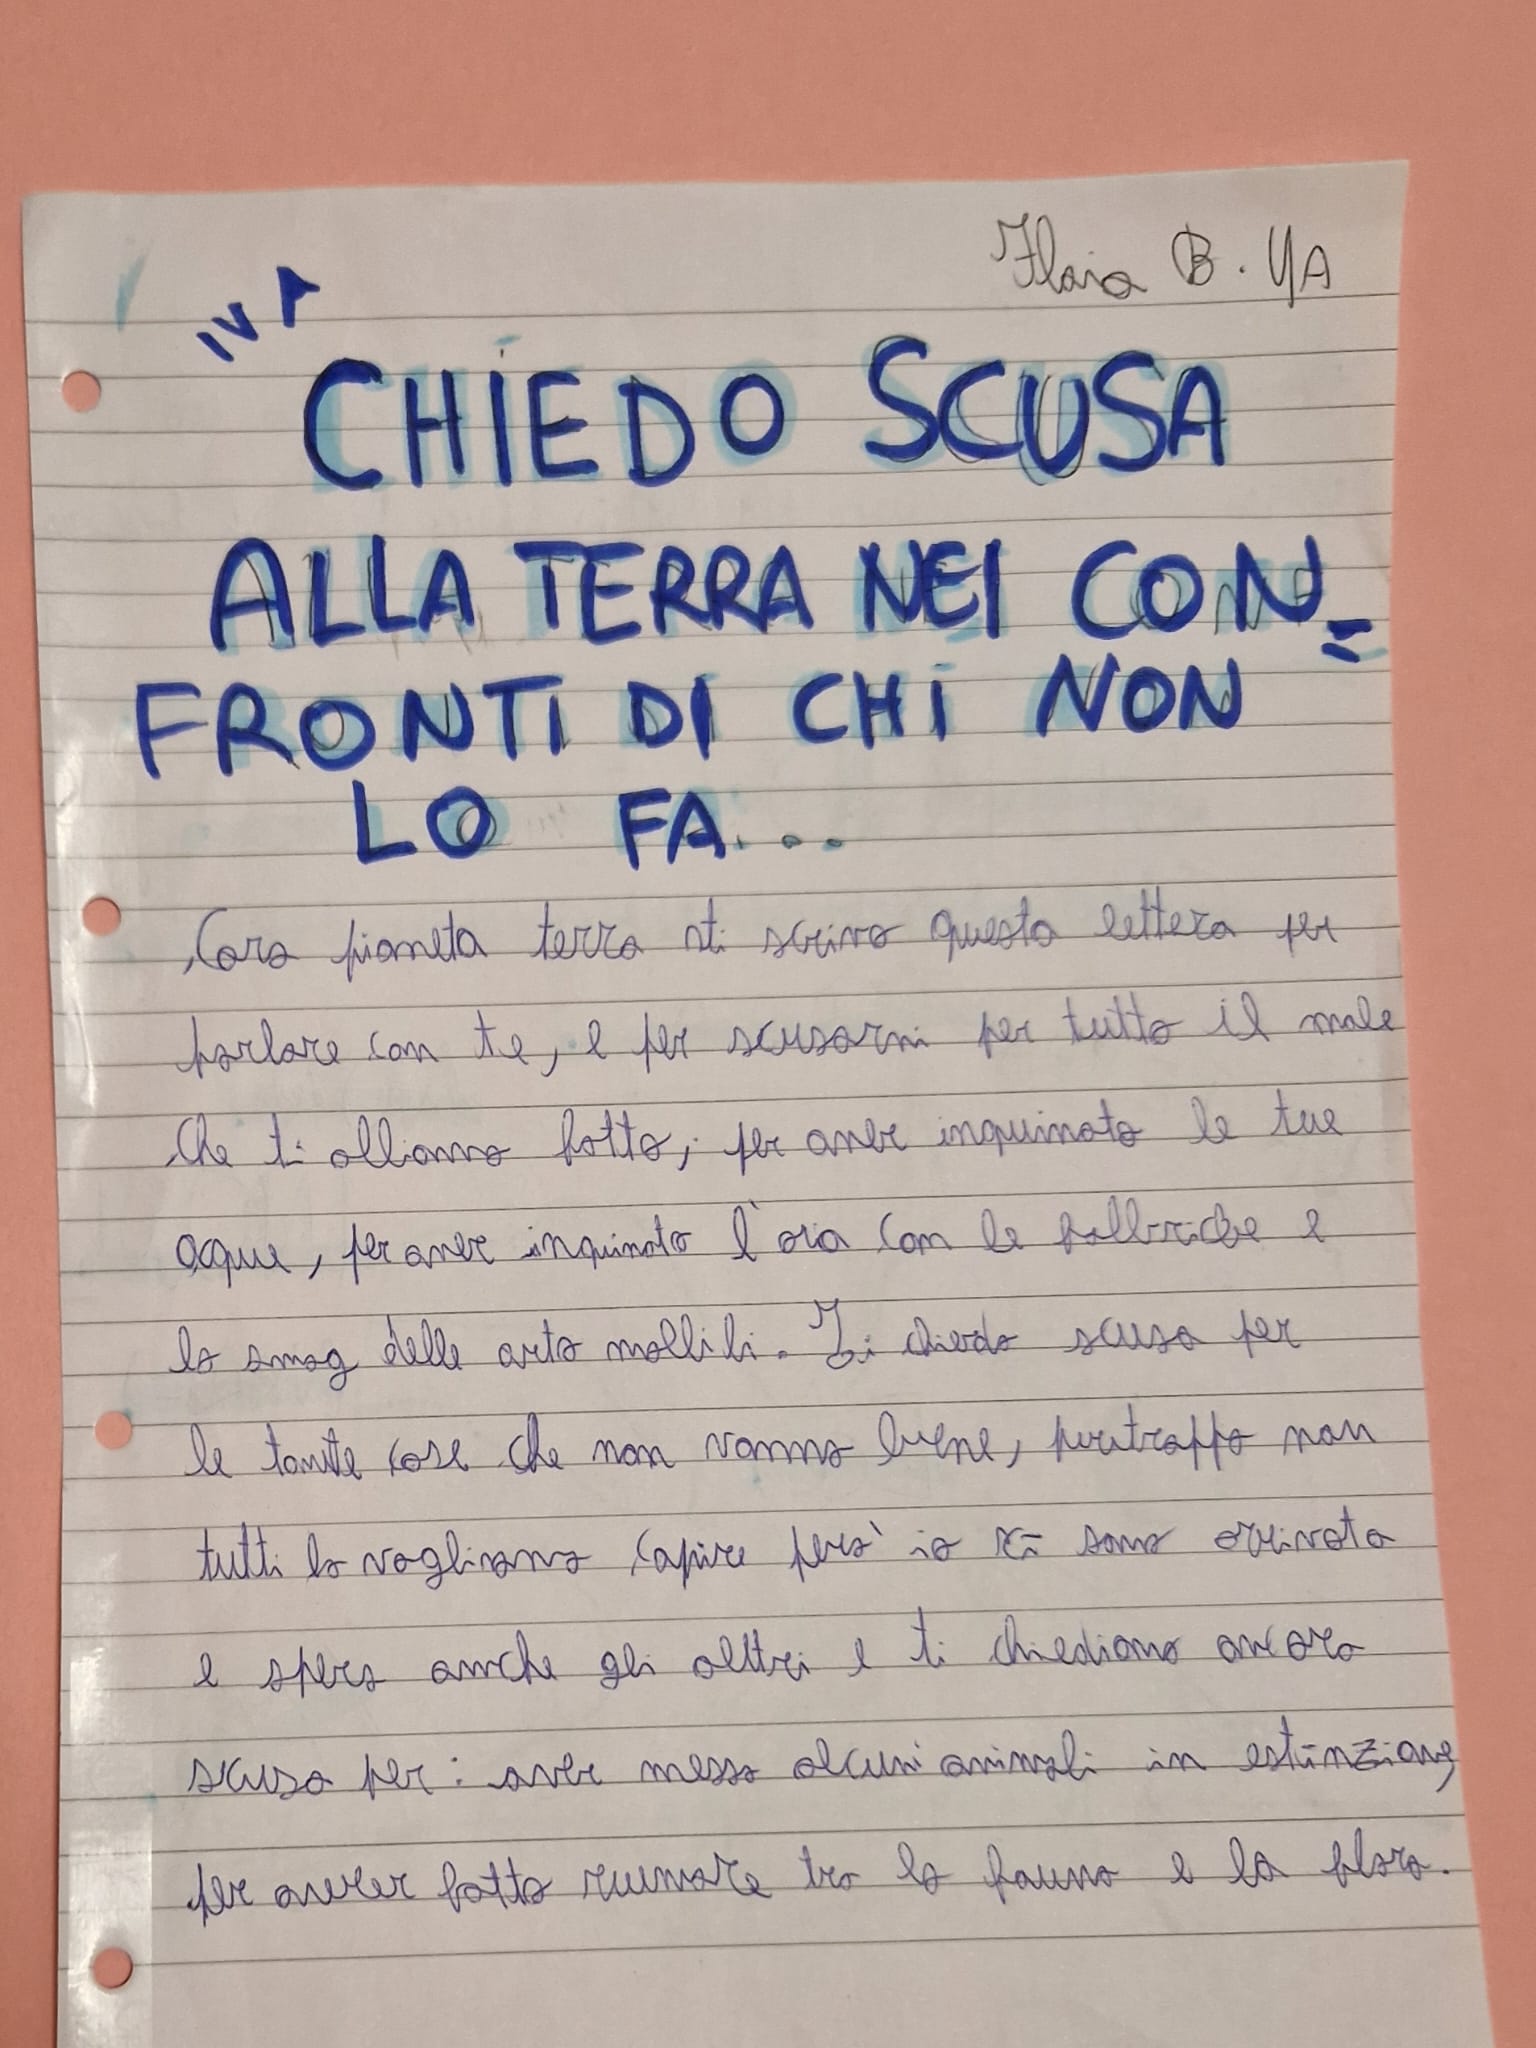 Flavia B. 4A
IV A
CHIEDO SCUSA
ALLA TERRA NEI CON=
FRONTI DI CHI NON
LO FA...
Caro pianeta terra ti scrivo questa lettera per
parlare con te, e per scusarmi per tutto il male
che ti abbiamo fatto, per aver inquinato le tue
acque, per aver inquinato l'aria con le fabbriche e
lo smog delle auto mobbili. Ti chiedo scusa per
le tante cose che non vanno bene, purtroppo non
tutti lo vogliamo capire però io ci sono arrivata
e spero anche gli altri e ti chiediamo ancora
scusa per: aver messo alcuni animali in estinzione,
per aver fatto rumore tra la fauna e la flora.